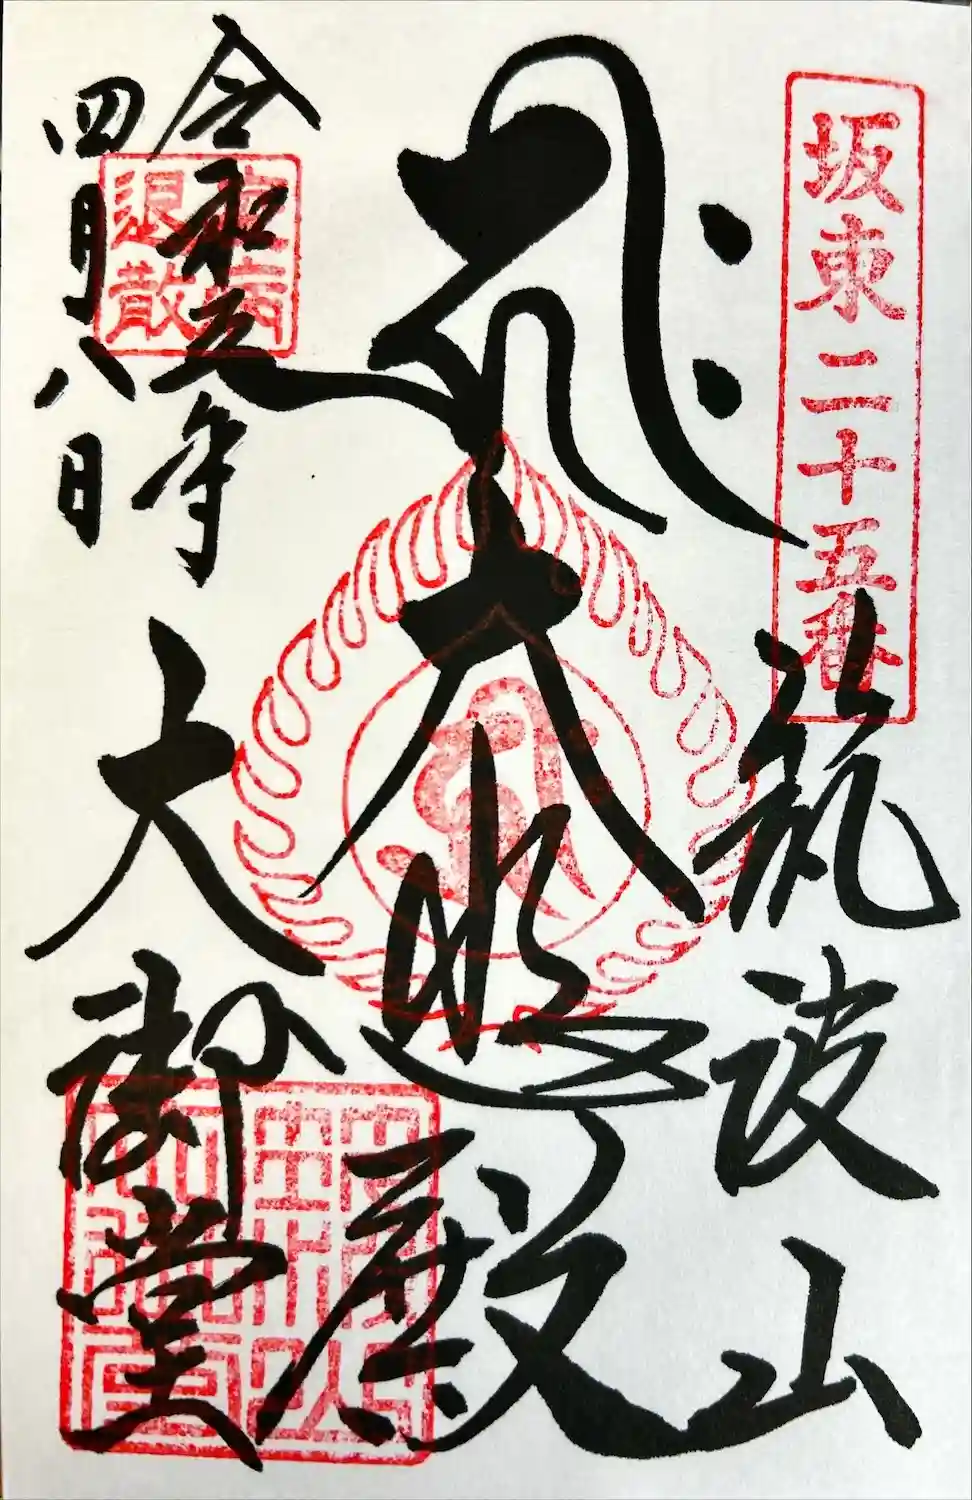 坂東二十五番
筑波山
ह्रीः
大悲殿
大御堂
令和五年
四月八日
疫病
退散